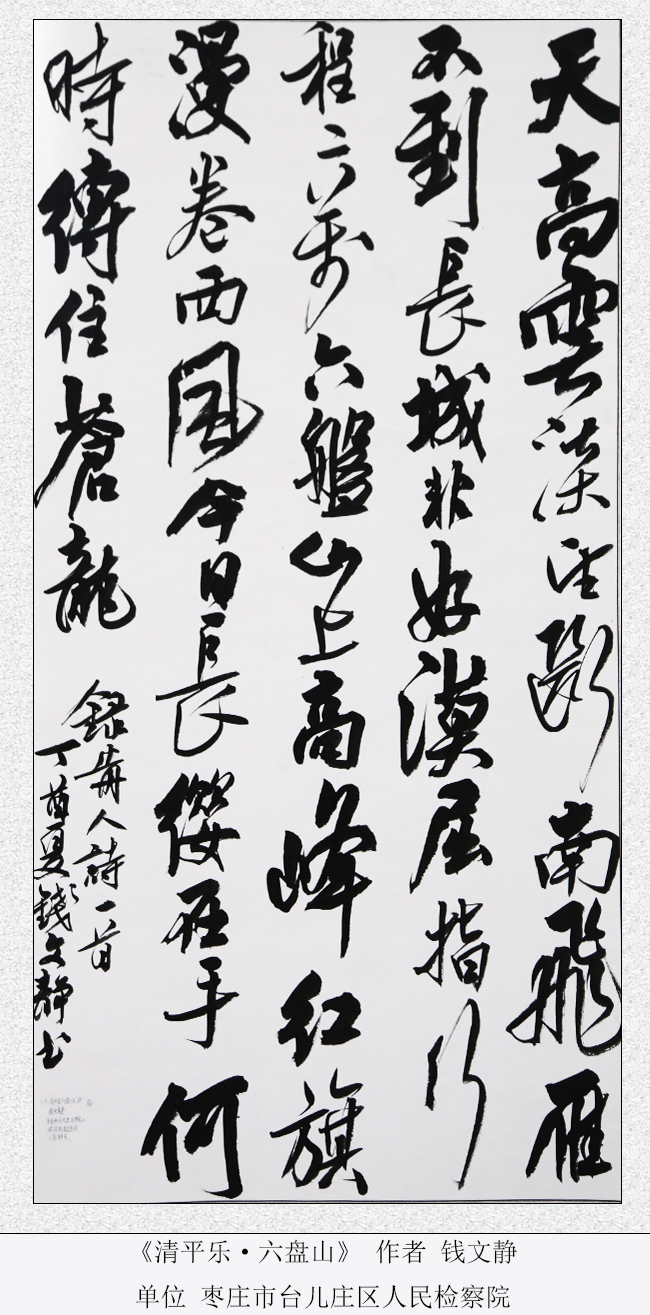 天高雲淡望斷南飛雁
不到長城非好漢屈指行
程二萬六盤山上高峰红旗
漫卷西風今日長纓在手何
時縛住蒼龍
錄偉人詩一首
丁酉夏錢文靜书
《清平乐•六盘山》 作者 钱文静
单位 枣庄市台儿庄区人民检察院